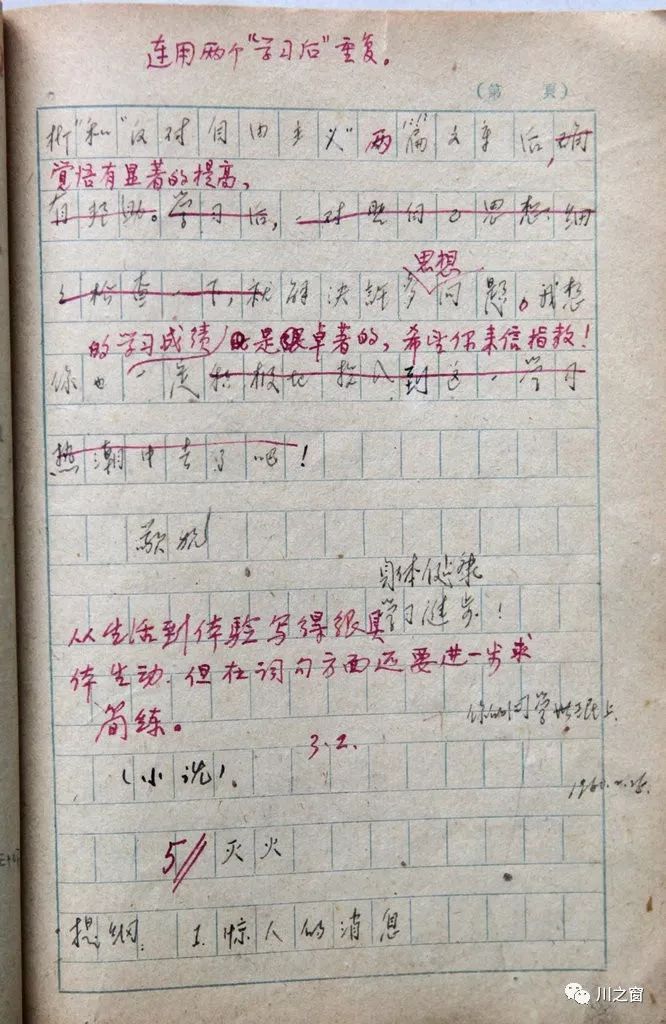 连用两个“学习后”重复。
（第　頁）
析”和“反对自由主义”两篇文章后，确
觉悟有显著的提高，
有帮助。学习后，一对照自己思想，细
思想
检查一下，就解决許多问题。我想
的学习成绩是很卓著的，希望你来信指教！
你也一定积极地投入到这一学习
热潮中去了吧！
敬祝
身体健康
学习进步！
从生活到体验写得很具
体生动．但在词句方面还要进一步求
简练。
你的同学上
3.2.
（小说）
5 灭火
提纲：1.惊人的消息
川之窗